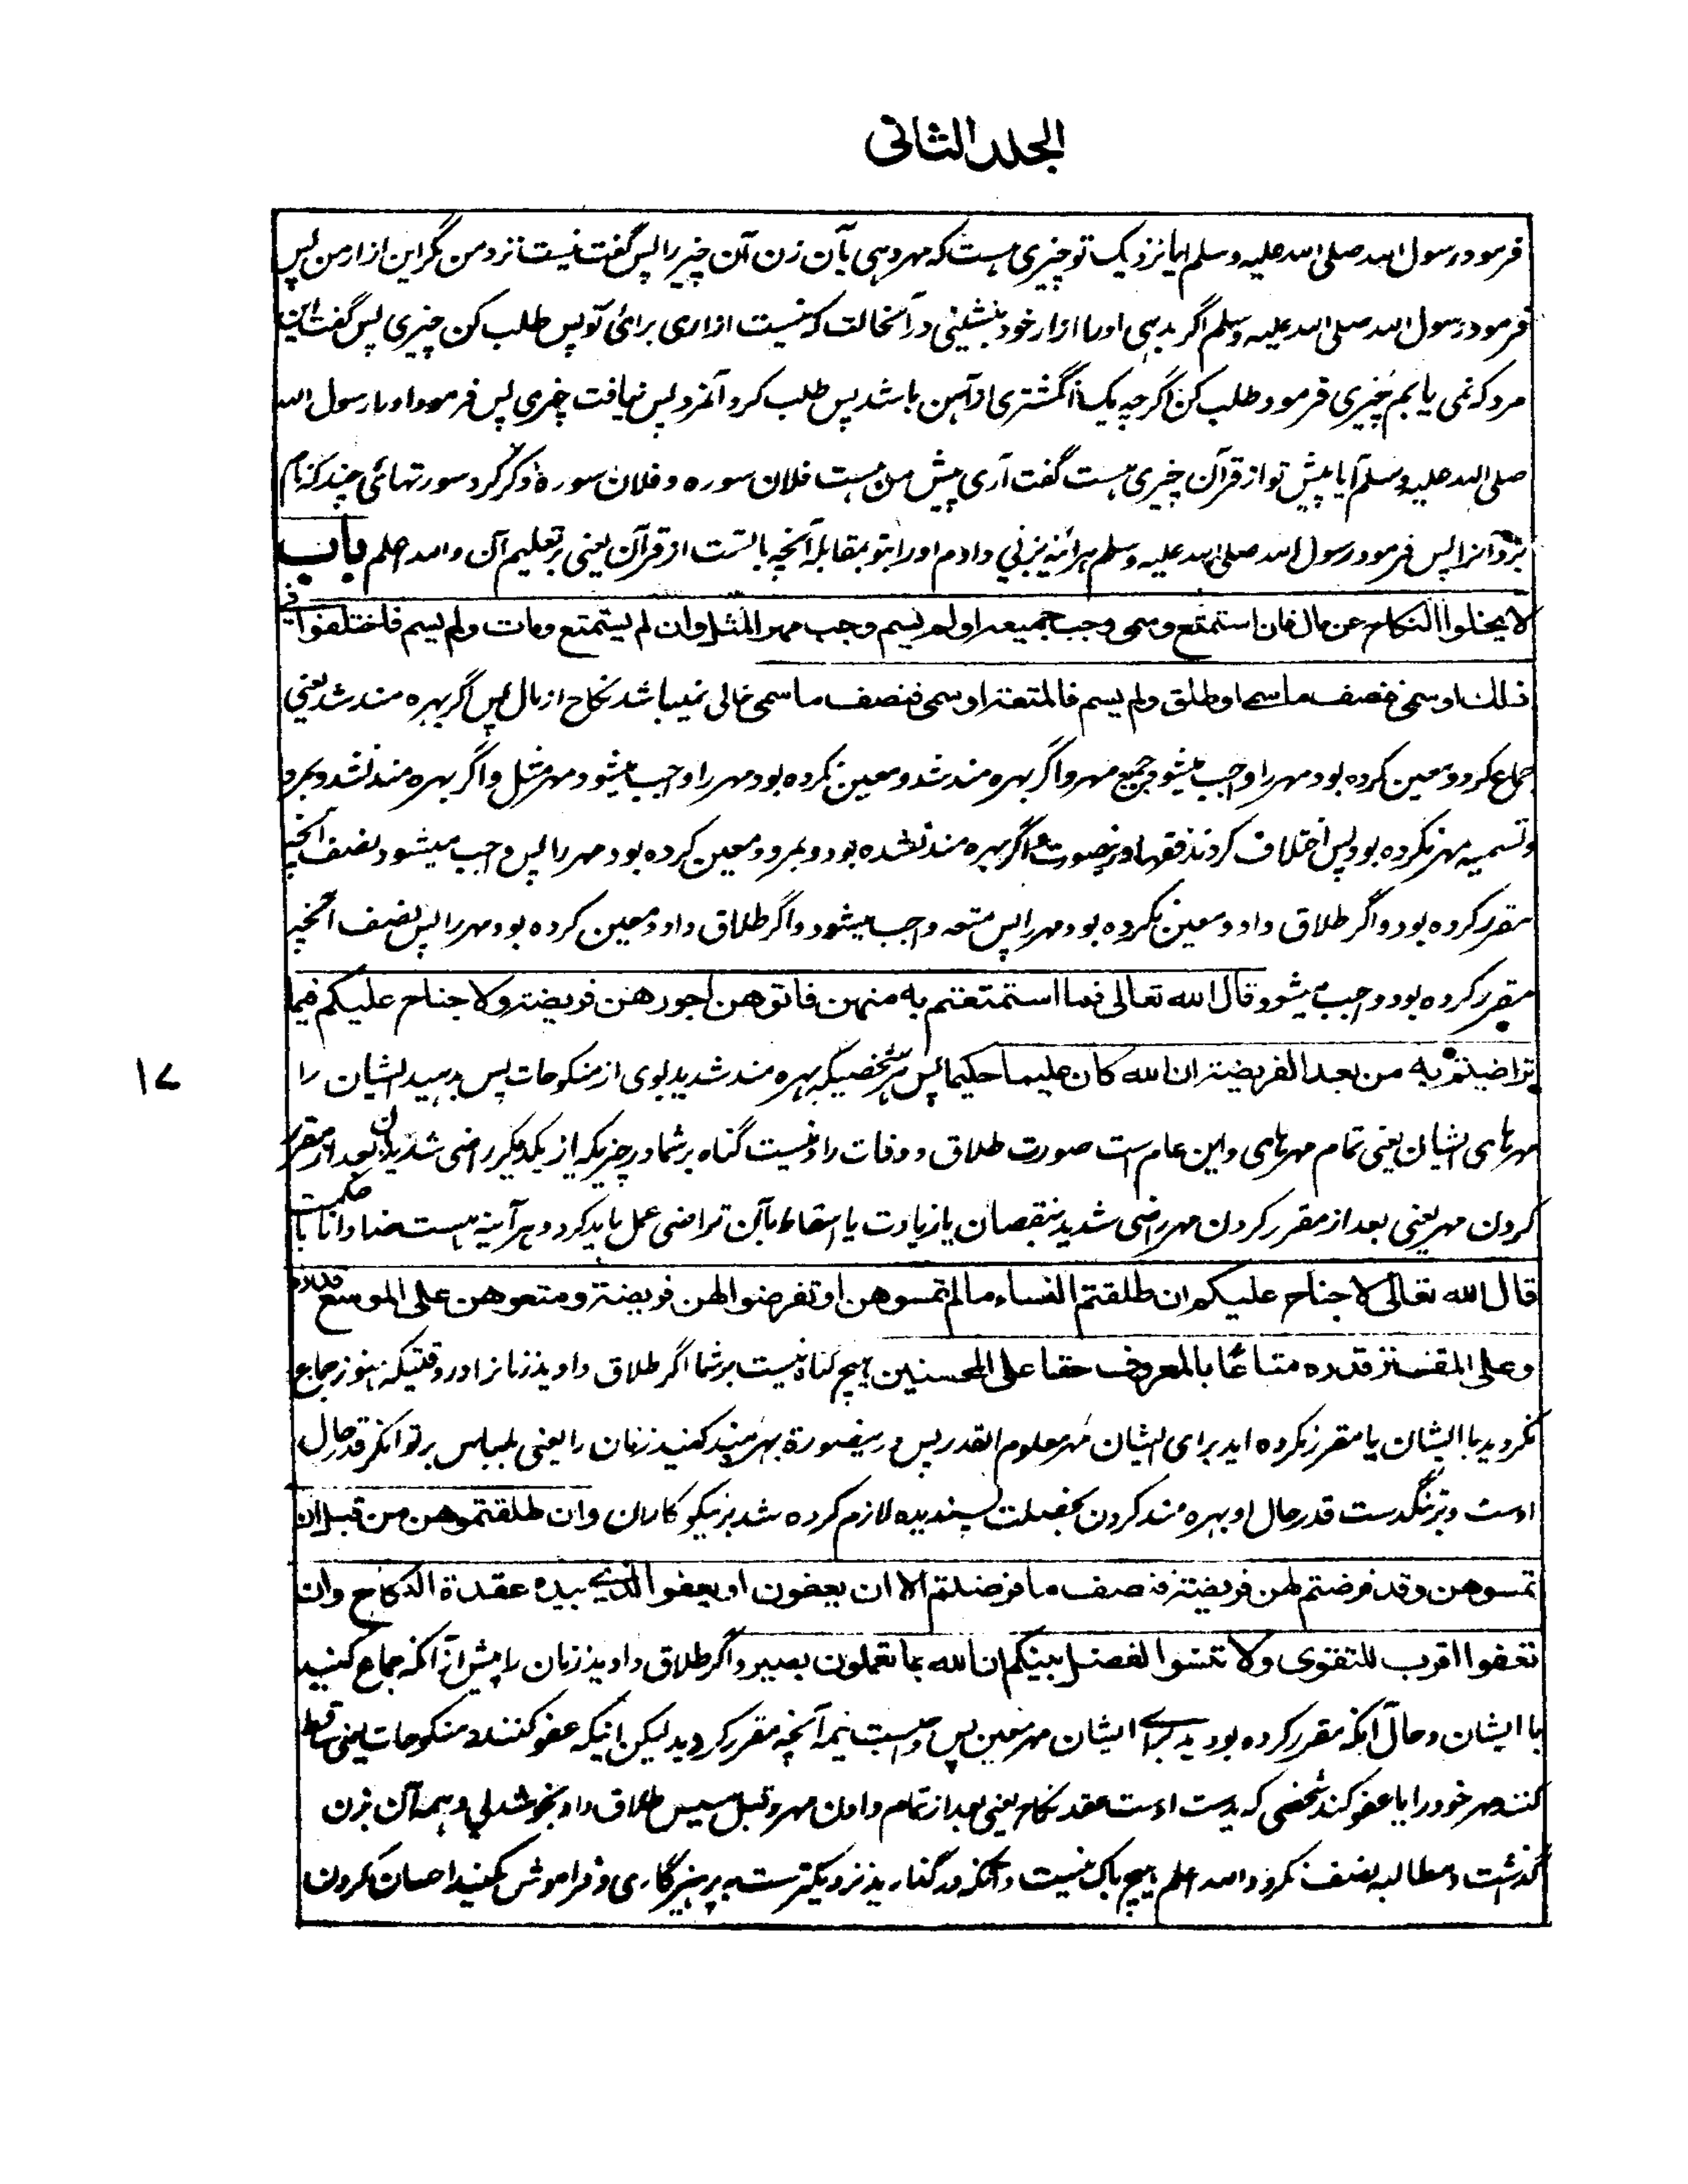 الجلد الثانی
فرمود رسول الله صلی الله علیه وسلم ایا نزدیک تو چیزی هست که مهر دهی بآن زن آن چیز را پس گفت نیست نزد من مگر این ازار من پس
فرمود رسول الله صلی الله علیه وسلم اگر بدهی او را ازار خود بنشینی در آنحالت که نیست ازاری برای تو پس طلب کن چیزی پس گفت این
مرد که نمی یابم چیزی فرمود طلب کن اگرچه یک انگشتری از آهن باشد پس طلب کرد آنمرد پس نیافت چیزی پس فرمود او را رسول الله
صلی الله علیه وسلم آیا پیش تو از قرآن چیزی هست گفت آری پیش من هست فلان سوره و فلان سوره ذکر کرد سورتهائی چند که نام
برد آنرا پس فرمود رسول الله صلی الله علیه وسلم هرآئینه بزنی دادم او را بتو بمقابله آنچه با تست از قرآن یعنی بر تعلیم آن والله اعلم باب
لا یخلوا النکاح عن مال فان استمتع وسمی وجب جمیعه او لم یسم وجب مهر المثل وان لم یستمتع ومات ولم یسم فاختلفوا فی
ذلك او سمی فنصف ما سمی او طلق ولم یسم فالمتعة او سمی فنصف ما سمی خالی نمیباشد نکاح از مال پس اگر بهره مند شد یعنی
جماع کرد و معین کرده بود مهر را واجب میشود جمیع مهر و اگر بهره مند شد و معین نکرده بود مهر را واجب میشود مهر مثل و اگر بهره مند نشد و بمرد
و تسمیه مهر نکرده بود پس اختلاف کردند فقها درینصورت و اگر بهره مند نشده بود و بمرد و معین کرده بود مهر را پس واجب میشود نصف آنچه
مقرر کرده بود و اگر طلاق داد و معین نکرده بود مهر را پس متعه واجب میشود و اگر طلاق داد و معین کرده بود مهر را پس نصف آنچه
مقرر کرده بود واجب میشود قال الله تعالی فما استمتعتم به منهن فاتوهن اجورهن فریضة ولا جناح علیکم فیما
تراضیتم به من بعد الفریضة ان الله کان علیما حکیما پس هر شخصیکه بهره مند شدید بوی از منکوحات پس بدهید ایشان را
۱۷
مهرهای ایشان یعنی تمام مهرهای و این عام است صورت طلاق و وفات را و نیست گناه بر شما در چیزیکه از یکدیگر راضی شدید بآن بعد از مقرر
کردن مهر یعنی بعد از مقرر کردن مهر راضی شدید بنقصان یا زیادت یا اسقاط بآن تراضی عمل باید کرد و هرآینه هست خدا دانا با حکمت
قال الله تعالی لا جناح علیکم ان طلقتم النساء ما لم تمسوهن او تفرضوا لهن فریضة ومتعوهن علی الموسع قدره
وعلی المقتر قدره متاعًا بالمعروف حقا علی المحسنین هیچ گناه نیست بر شما اگر طلاق دادید زنان را در وقتیکه هنوز جماع
نکردید با ایشان یا مقرر نکرده اید برای ایشان مهر معلوم القدر پس درینصورة بهره مند کنید زنان را یعنی بلباس بر توانگر قدر حال
اوست و بر تنگدست قدر حال او بهره مند کردن بخصلت پسندیده لازم کرده شد بر نیکوکاران وان طلقتموهن من قبل ان
تمسوهن وقد فرضتم لهن فریضة فنصف ما فرضتم الا ان یعفون او یعفوا الذی بیده عقدة النکاح وان
تعفوا اقرب للتقوی ولا تنسوا الفضل بینکم ان الله بما تعملون بصیر و اگر طلاق دادید زنان را پیش از آنکه جماع کنید
با ایشان و حال آنکه مقرر کرده بودید برای ایشان مهر معین پس واجبست نیمه آنچه مقرر کردید لیکن اینکه عفو کنند منکوحات یعنی ساقط
کنند مهر خود را یا عفو کند شخصی که بدست اوست عقد نکاح یعنی بعد از تمام دادن مهر و قبل مسیس طلاق داد بخوشدلی و همه آن بزن
گذشت و مطالبه نصف نکرد والله اعلم هیچ باک نیست و آنکه درگذارید نزدیکترست به پرهیزگاری و فراموش مکنید احسان کردن